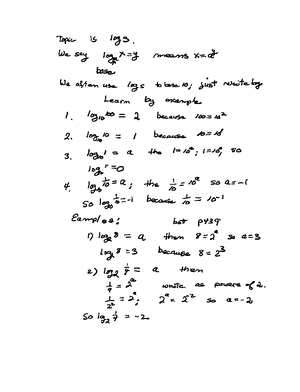 Topic is logs.
We say logₐx=y means x=aʸ
base
We often use logs to base 10; just write log
Learn by example
1. log₁₀100 = 2 because 100=10²
2. log₁₀10 = 1 because 10=10¹
3. log₁₀1 = a the 1=10ᵃ; 1=10⁰, so
log₁₀1=0
4. log₁₀ 1/10 = a; the 1/10 = 10ᵃ so a=-1
So log₁₀ 1/10=-1 because 1/10 = 10⁻¹
Examples: bot p439
1) log₂8 = a then 8=2ᵃ so a=3
log₂8 = 3 because 8=2³
2) log₂ 1/4 = a then
1/4 = 2ᵃ write as powers of 2.
1/2² = 2ᵃ; 2ᵃ = 2⁻² so a=-2
So log₂ 1/4 = -2